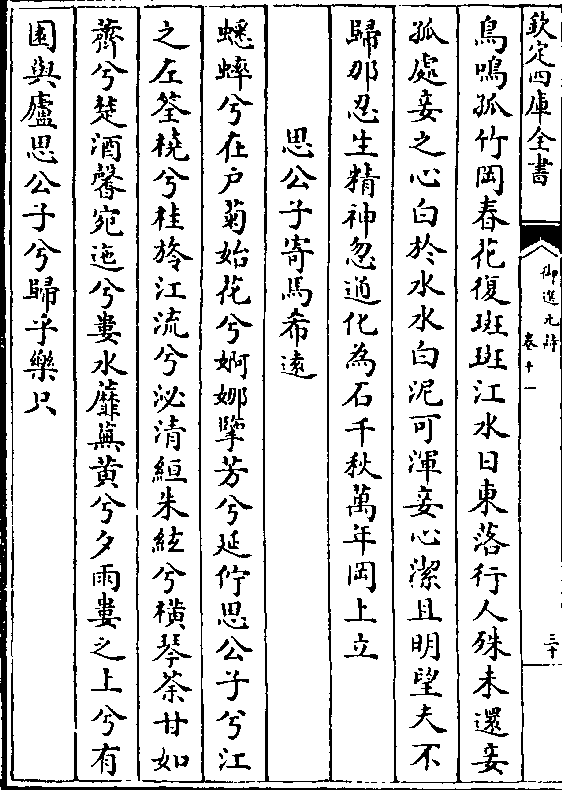 欽定四庫全書
御選元詩
卷十一
三十
鳥鳴孤竹岡春花復斑斑江水日東落行人殊未還妾
孤處妾之心白於水水白泥可渾妾心潔且明望夫不
歸那忍生精神忽通化為石千秋萬年岡上立
思公子寄馬希遠
蟋蟀兮在戶菊始花兮婀娜搴芳兮延佇思公子兮江
之左荃橈兮桂旍江流兮泌清絙朱絃兮橫琴荼甘如
薺兮楚酒馨宛迤兮婁水蘼蕪黃兮夕雨婁之上兮有
園與廬思公子兮歸乎樂只